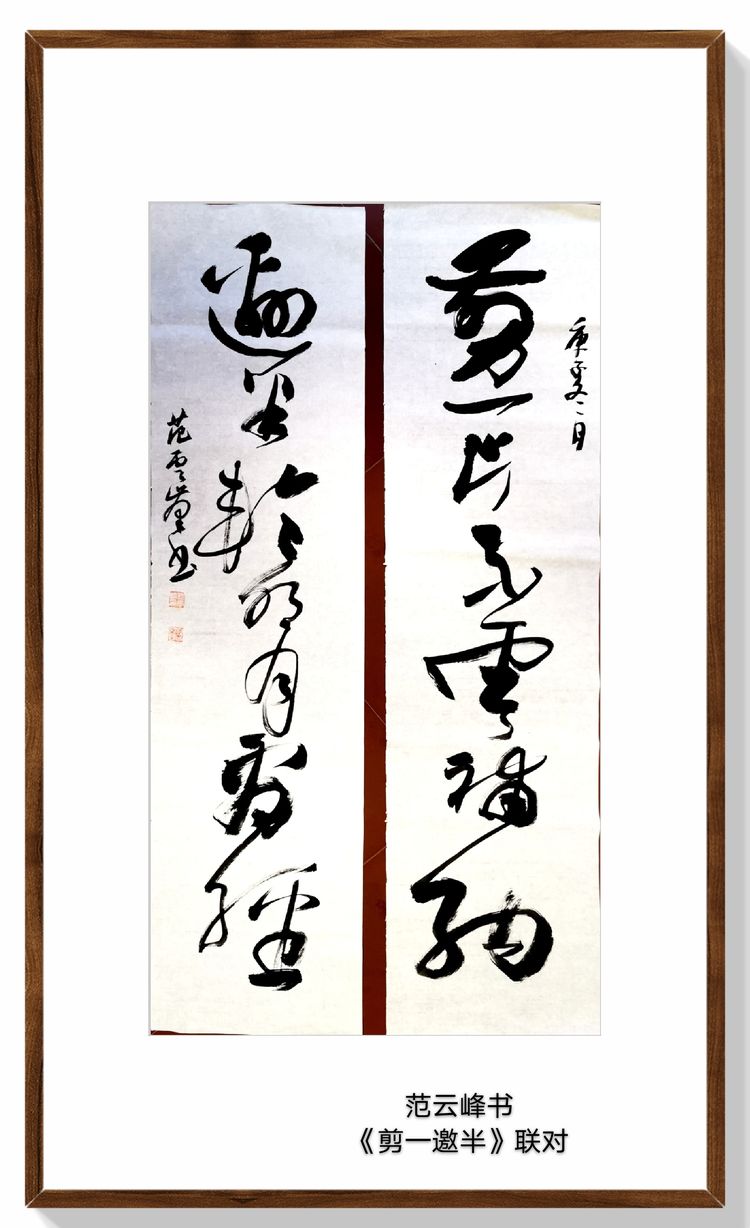 庚子夏月
剪一片雲補衲
邀半輪明月看經
范雲峰书
范云峰书
《剪一邀半》联对